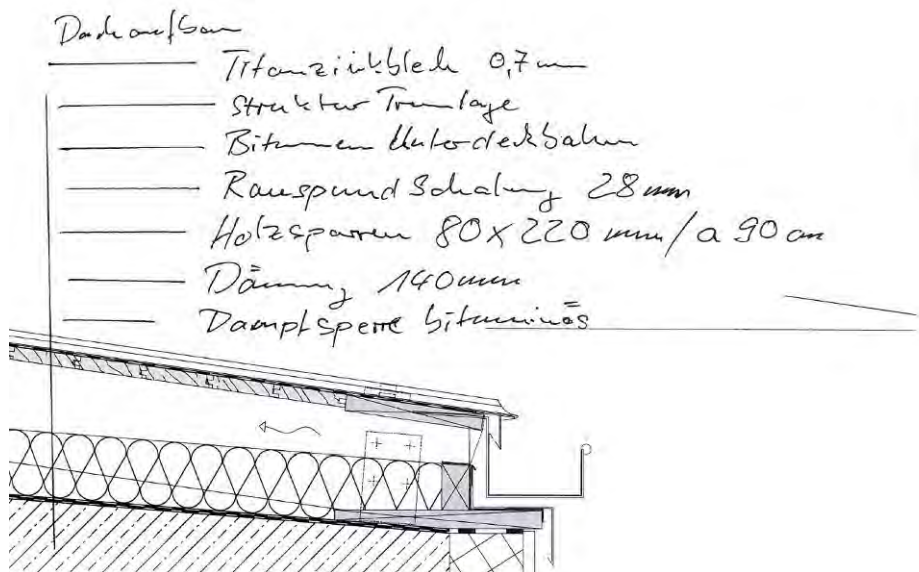 Dachaufbau
Titanzinkblech 0,7 mm
Struktur Trennlage
Bitumen Unterdeckbahn
Rauspund Schalung 28 mm
Holzsparren 80 x 220 mm / a 90 cm
Dämmung 140 mm
Dampfsperre bituminös